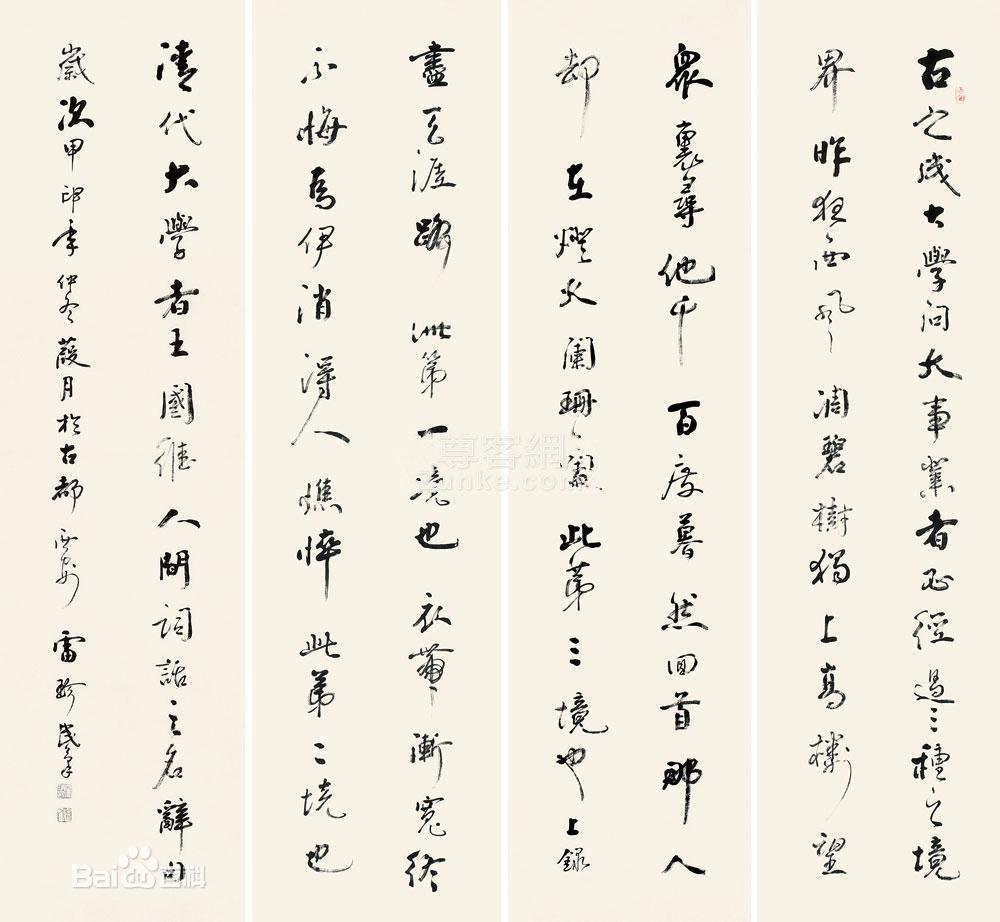 古之成大學問大事業者必經過三種之境
界昨夜西風凋碧樹獨上高樓望
衆裏尋他千百度驀然回首那人
却在燈火闌珊處此第三境也上錄
盡天涯路此第一境也衣帶漸寬終
不悔為伊消得人憔悴此第二境也
清代大學者王國維人間詞話之名辭句
歲次甲卯年仲冬葭月於古都西安雷珍民書
尊客網
zunke.com
Bai百科